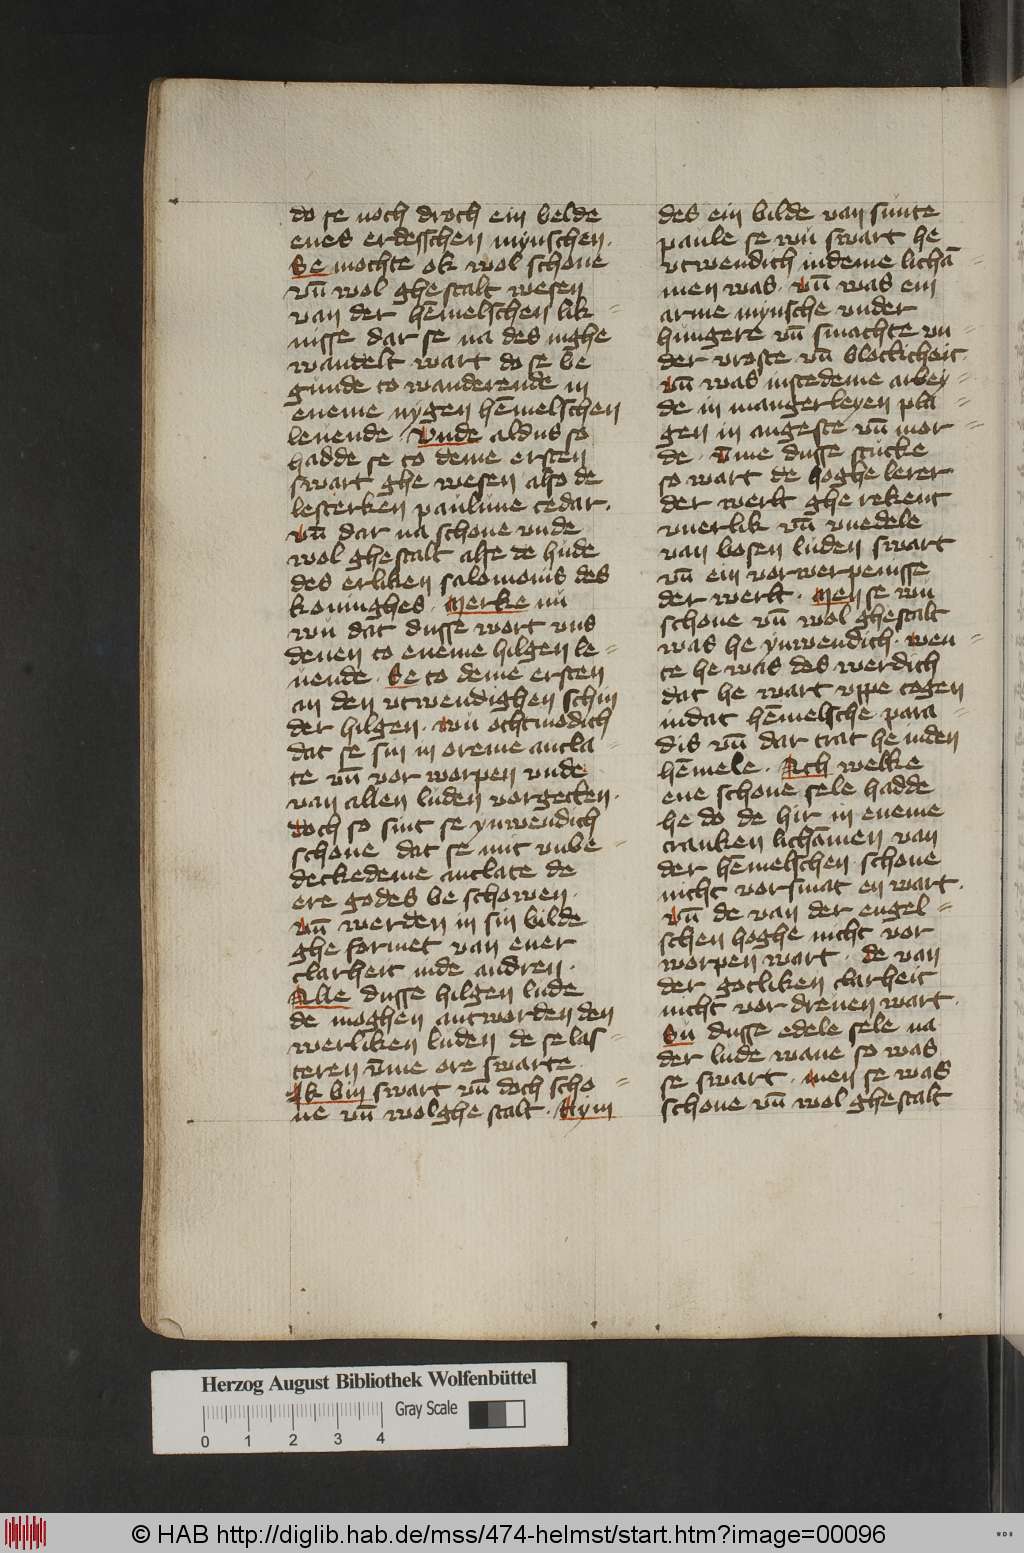 do se noch droch ein belde
enes erdesschen mynschen.
Se mochte ok wol schone
vn̄ wol ghestalt wesen
van der hēmelschen lik =
nisse dar se na des inghe
wandelt wart do se be
gunde to wanderende in
eneme nygen hēmelschen
leuende. Vnde aldus so
hadde se to deme ersten
swart ghe wesen also de
lesterken pauline cedar.
vn̄ dar na schone vnde
wol ghestalt alse de hude
des erliken salomonis des
koninghes. Merke nu
wu dat dusse wort vns
denen to eneme hilgen le =
uende. Se to deme ersten
an den vtwendighen schin
der hilgen. wu othmodich
dat se sin in oreme antla =
te vn̄ vor worpen vnde
van allen luden vorgeten.
doch so sint se ynwendich
schone dat se mit vnbe =
deckedeme antlate de
ere godes be schowen.
vn̄ werden in sin bilde
ghe formet van ener
clarheit inde andren.
Alle dusse hilgen lude
de moghen antworden den
werliken luden de se las =
teren v̄me ore swarte
Ik bin swart vn̄ doch scho =
ne vn̄ wolghe stalt. Nym
des ein bilde van sunte
paule se wu swart he
vtwendich indeme lichā =
men was. vn̄ was ein
arme mynsche vnder
hungere vn̄ smachte vn =
der vroste vn̄ bloticheit.
vn̄ was instedeme arbey =
de in mangerleyen pla =
gen in angeste vn̄ mor =
de. v̄me dusse stucke
so wart de hoghe lerer
der werlt ghe rekent
vnerlik vn̄ vnedele
van bosen luden swart
vn̄ ein vorwerpenisse
der werlt. Men se wu
schone vn̄ wol ghestalt
was he ynwendich. wen =
te he was des werdich
dat he wart vppe togen
indat hēmelsche para =
dis vn̄ dar trat he inden
hēmele. Ach welke
ene schone sele hadde
he do de hir in eneme
cranken lichāmen van
der hēmelschen schone
nicht vorsmat en wart.
vn̄ de van der engel =
schen hoghe nicht vor
worpen wart. de van
der gotliken clarheit
nicht vor dreuen wart.
Su dusse edele sele na
der lude wane so was
se swart. men se was
schone vn̄ wol ghestalt
Herzog August Bibliothek Wolfenbüttel
Gray Scale
0 1 2 3 4
© HAB http://diglib.hab.de/mss/474-helmst/start.htm?image=00096